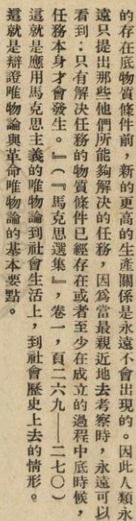 的存在底物質條件前，新的更高的生產關係是永遠不會出現的。因此人類永
遠只提出那些他們所能夠解決的任務，因爲當最親近地去考察時，永遠可以
看到：只有解決任務的物質條件已經存在或者至少在成立的過程中底時候，
任務本身才會發生。』（『馬克思選集』，卷一，頁二六九——二七〇）
這就是應用馬克思主義的唯物論到社會生活上，到社會歷史上去的情形。
這就是辯證唯物論與革命唯物論的基本要點。